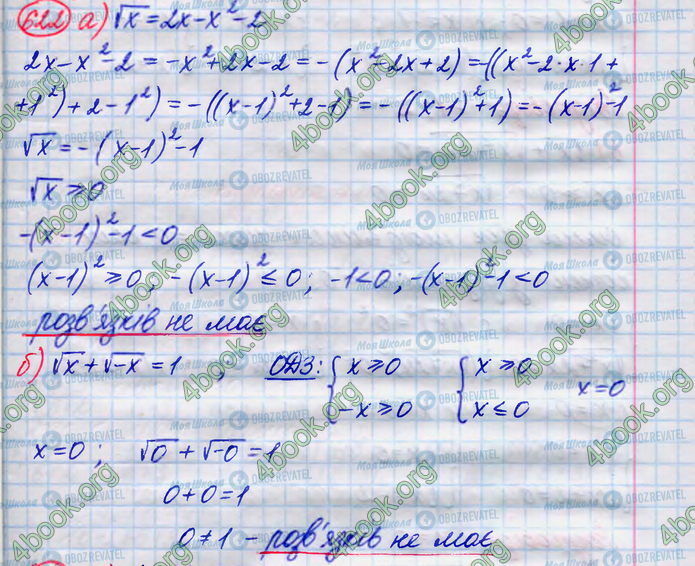 622 а) √x = 2x - x² - 2
2x - x² - 2 = -x² + 2x - 2 = -(x² - 2x + 2) = -((x² - 2·x·1 +
+ 1²) + 2 - 1²) = -((x-1)² + 2 - 1) = -((x-1)² + 1) = -(x-1)² - 1
√x = -(x-1)² - 1
√x ≥ 0
-(x-1)² - 1 < 0
(x-1)² ≥ 0; -(x-1)² ≤ 0; -1 < 0; -(x-1)² - 1 < 0
розв'язків не має
б) √x + √-x = 1, ОДЗ: { x ≥ 0 { x ≥ 0 x = 0
-x ≥ 0 x ≤ 0
x = 0; √0 + √-0 = 1
0 + 0 = 1
0 ≠ 1 - розв'язків не має